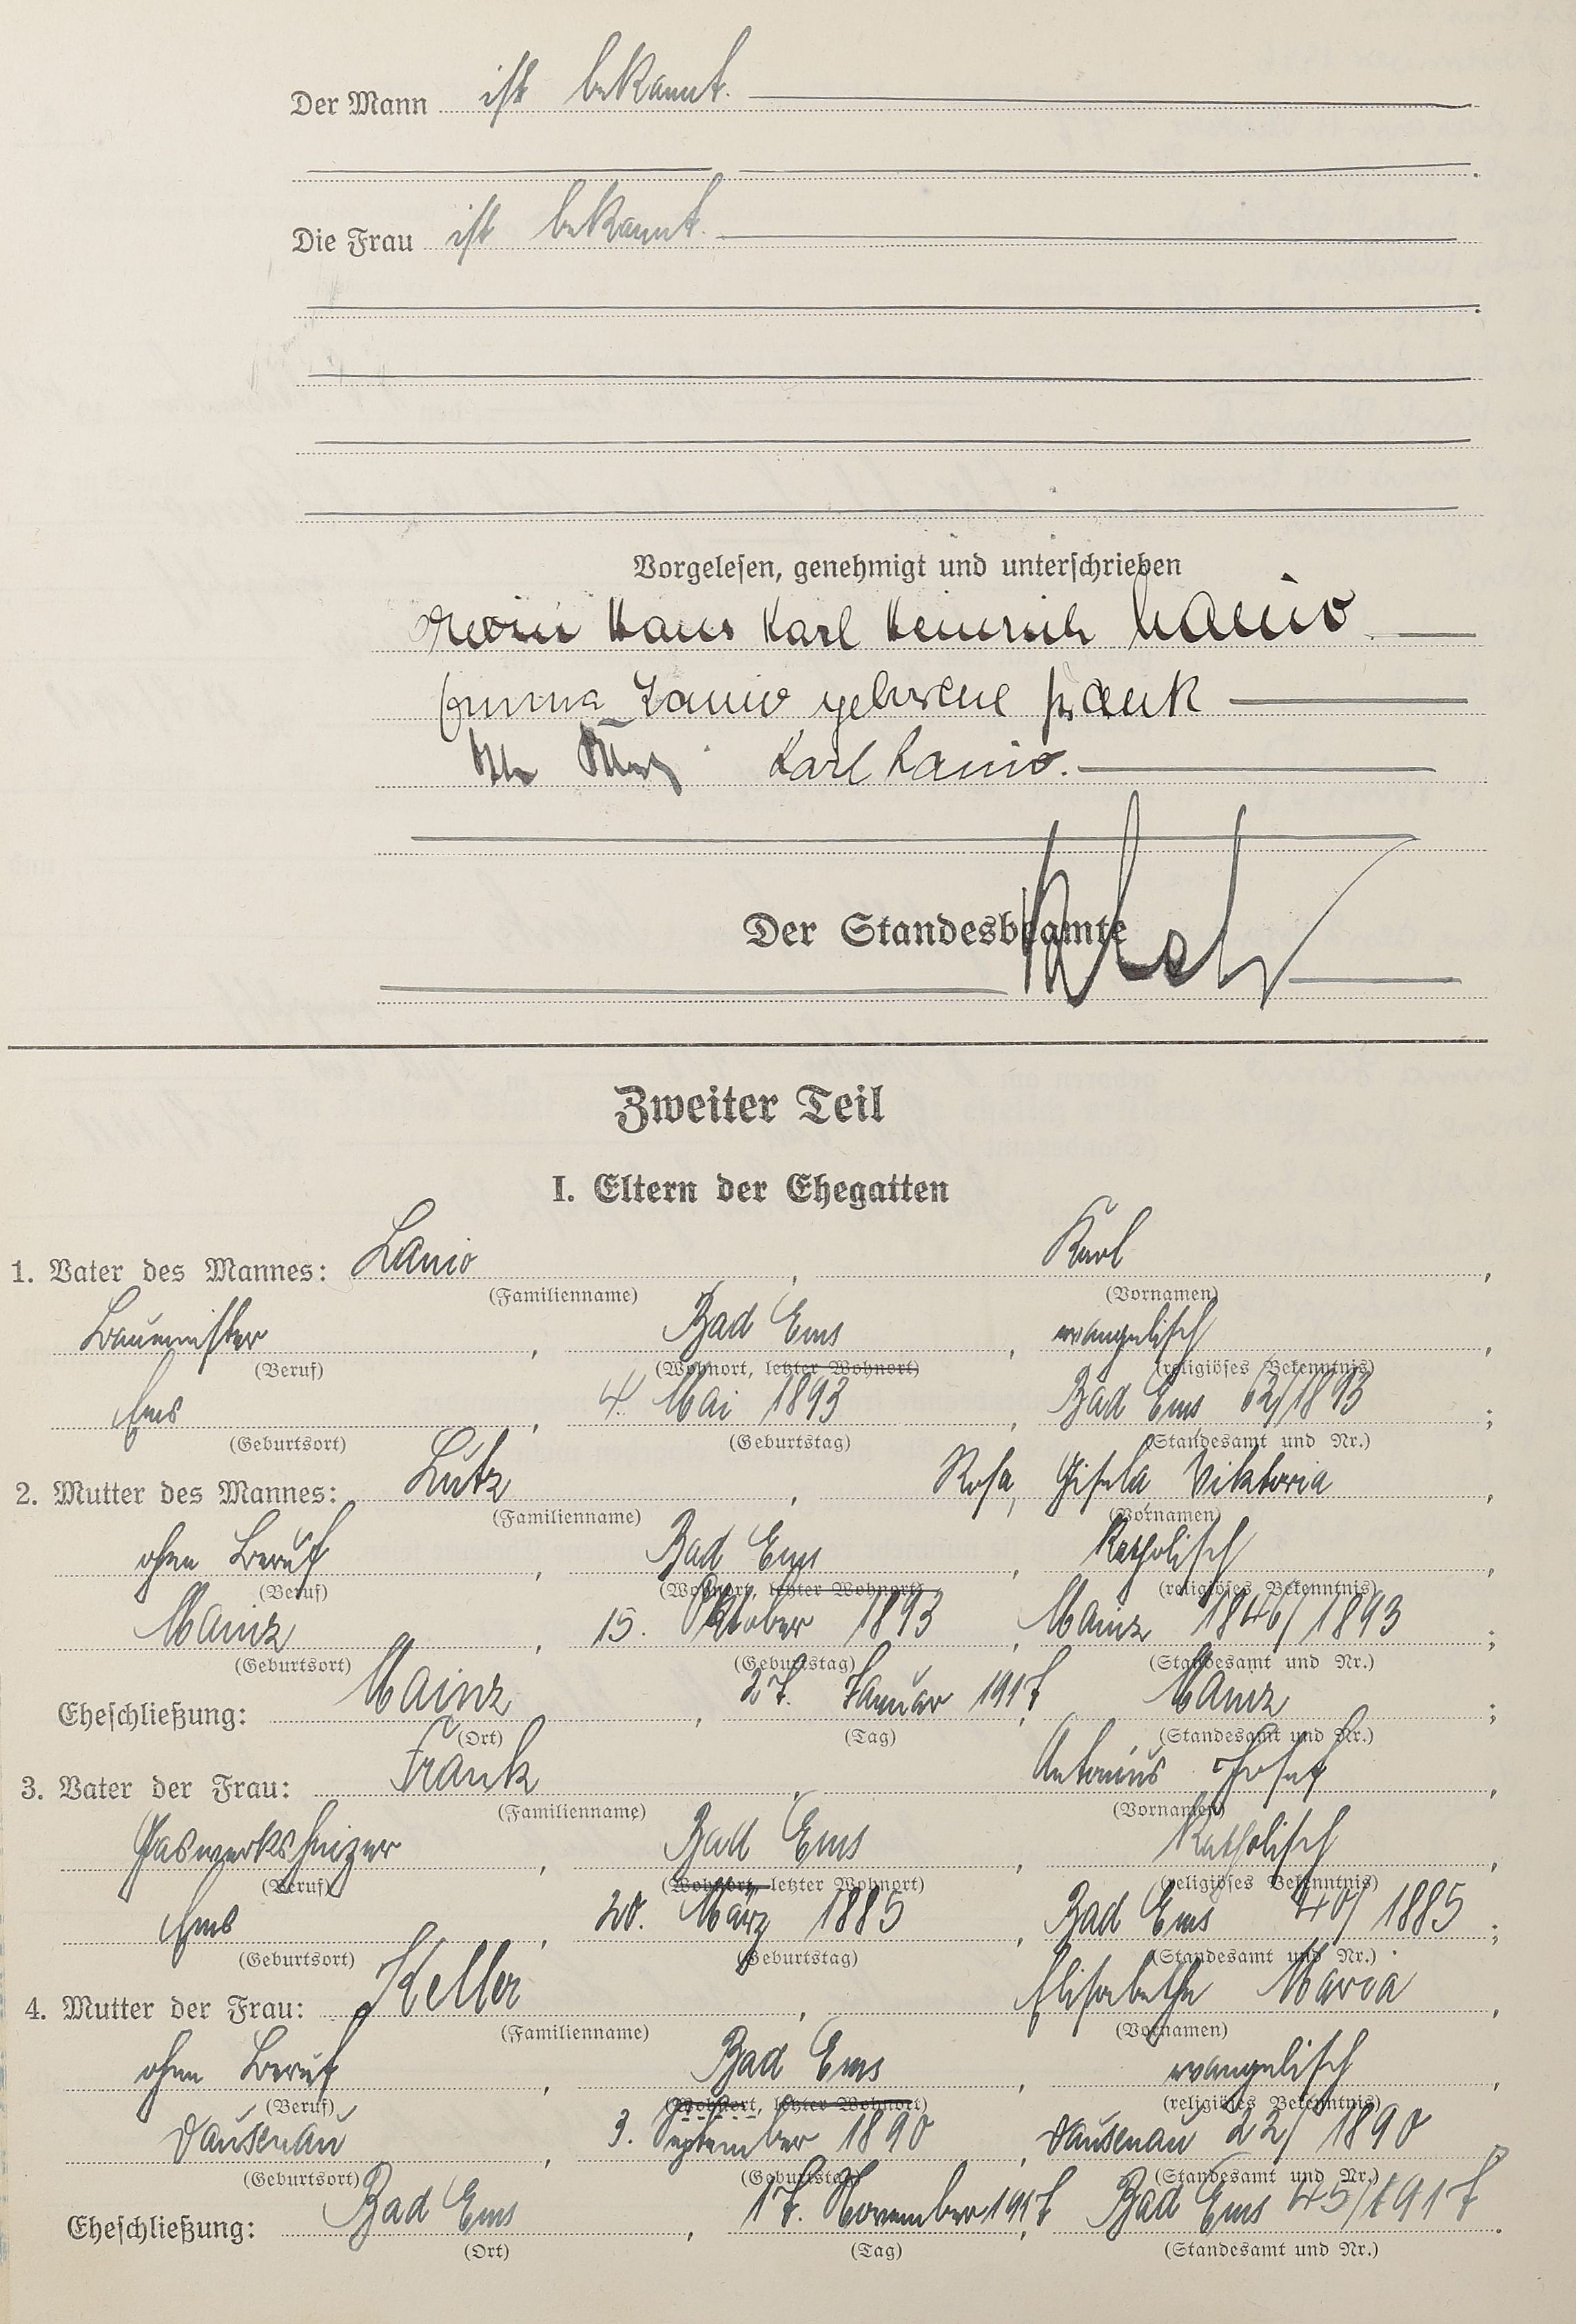 Der Mann ist bekannt.
Die Frau ist bekannt.
Vorgelesen, genehmigt und unterschrieben
Erwin Hans Karl Heinrich Lanio
Emma Lanio geborene Frank
Karl Lanio.
Der Standesbeamte
Zweiter Teil
I. Eltern der Ehegatten
1. Vater des Mannes: Lanio, Karl,
(Familienname) (Vornamen)
Baumeister, Bad Ems, evangelisch,
(Beruf) (Wohnort, letzter Wohnort) (religiöses Bekenntnis)
Ems, 4. Mai 1893, Bad Ems 62/1893;
(Geburtsort) (Geburtstag) (Standesamt und Nr.)
2. Mutter des Mannes: Lutz, Rosa, Gisela Viktoria,
(Familienname) (Vornamen)
ohne Beruf, Bad Ems, katholisch,
(Beruf) (Wohnort, letzter Wohnort) (religiöses Bekenntnis)
Mainz, 15. Oktober 1893, Mainz 1846/1893;
(Geburtsort) (Geburtstag) (Standesamt und Nr.)
Eheschließung: Mainz, 27. Januar 1917, Mainz;
(Ort) (Tag) (Standesamt und Nr.)
3. Vater der Frau: Frank, Antonius Josef,
(Familienname) (Vornamen)
Gaswerksheizer, Bad Ems, katholisch,
(Beruf) (Wohnort, letzter Wohnort) (religiöses Bekenntnis)
Ems, 20. März 1885, Bad Ems 40/1885;
(Geburtsort) (Geburtstag) (Standesamt und Nr.)
4. Mutter der Frau: Keller, Elisabethe Maria,
(Familienname) (Vornamen)
ohne Beruf, Bad Ems, evangelisch,
(Beruf) (Wohnort, letzter Wohnort) (religiöses Bekenntnis)
Dausenau, 3. September 1890, Dausenau 22/1890
(Geburtsort) (Geburtstag) (Standesamt und Nr.)
Eheschließung: Bad Ems, 17. November 1917, Bad Ems 45/1917.
(Ort) (Tag) (Standesamt und Nr.)